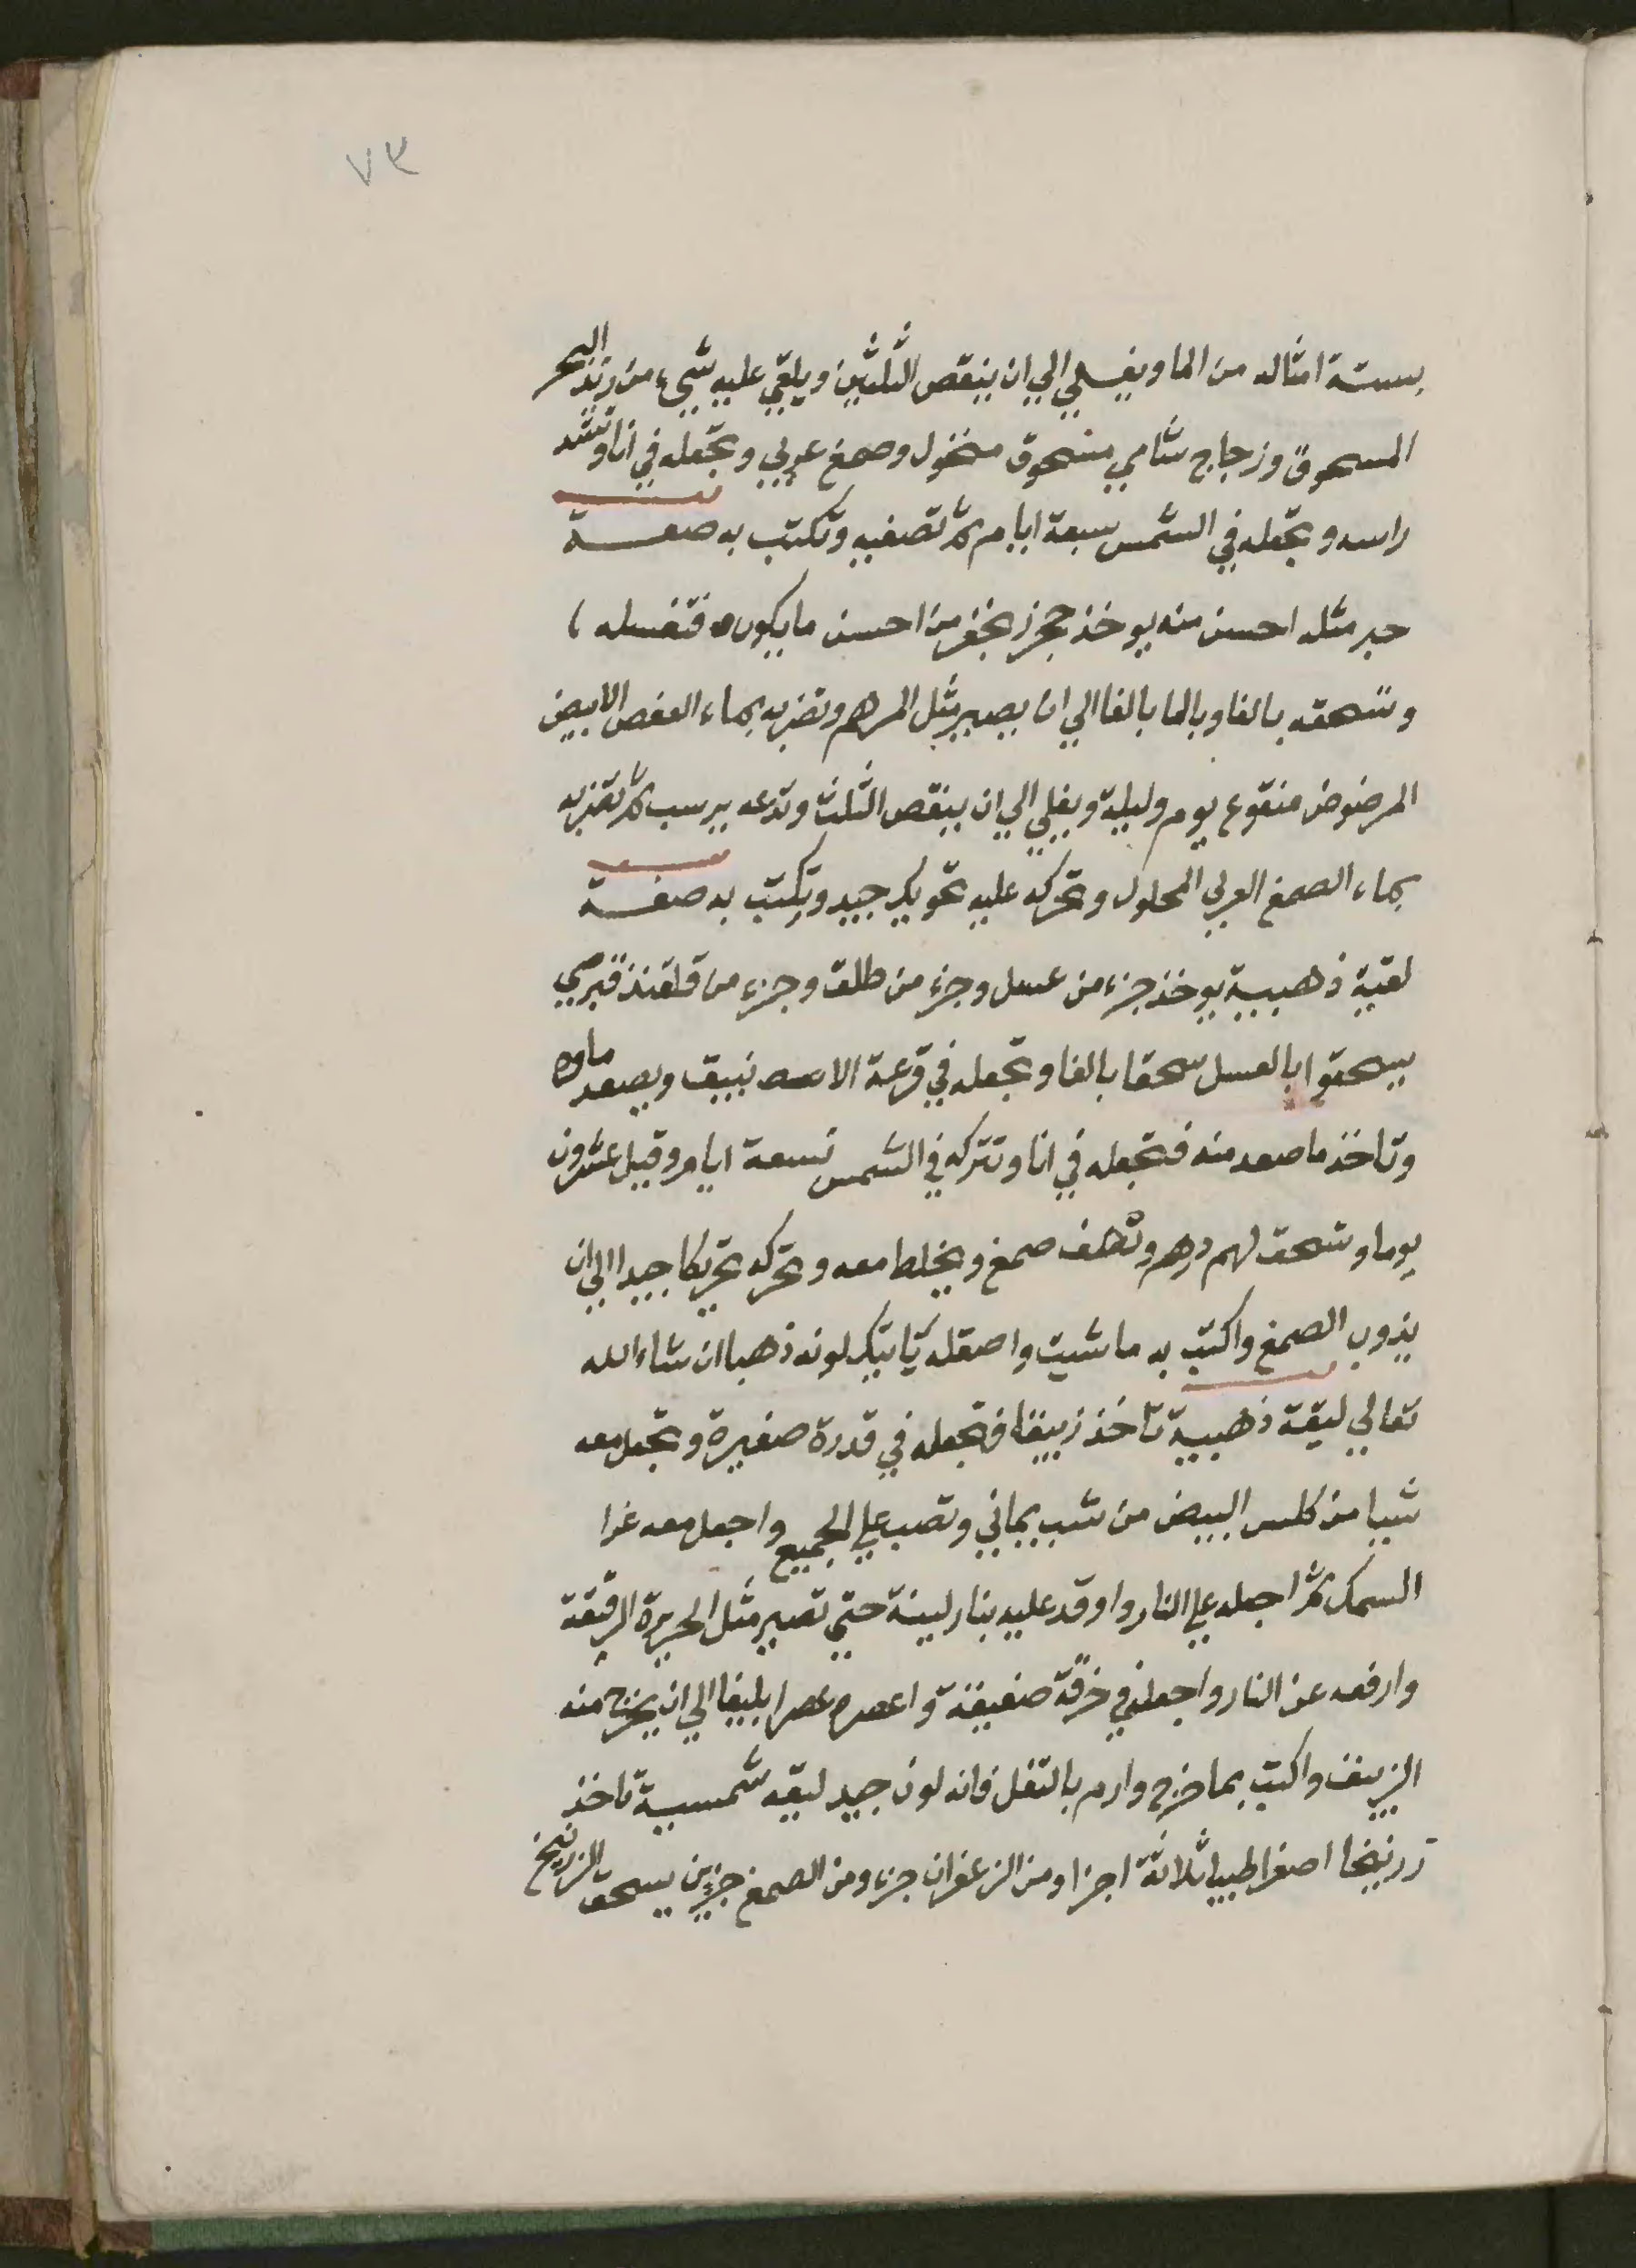 ٧٣
بستة امثاله من الما ويغلي الي ان ينقص الثلثين ويلقي عليه شيء من زبد البحر
المسحوق وزجاج شامي مسحوق منخول وصمغ عربي وتجعله في انا وتشد
راسه وتجعله في الشمس سبعة ايام ثم تصفيه وتكتب به صفة
حبر مثله احسن منه يوخذ حجر زنجفر من احسن ما يكون فتغسله
وتسحقه بالغا وبالما بالغا الي ان يصير مثل المرهم وتضربه بماء العفص الابيض
المرضوض منقوع يوم وليلة ويغلي الي ان ينقص الثلث وتدعه يرسب ثم تضربه
بماء الصمغ العربي المحلول وتحركه عليه تحويك جيد ويكتب به صفة
لقية ذهبية يوخذ جزء من عسل وجزء من طلق وجزء من قلقند قبرصي
يسحقوا بالعسل سحقا بالغا وتجعله في قرعة الا نبيق ويصعد ماوه
وتاخذ ما صعد منه فتجعله في انا وتتركه في الشمس تسعة ايام وقيل عشرون
يوما وتسحق لهم درهم ونصف صمغ ويخلط معه وتحركه تحريكا جيدا الي ان
يذوب الصمغ واكتب به ما شيت واصقله ياتيك لونه ذهبا ان شاء الله
تعالي ليقة ذهبية تاخذ زيبقا فتجعله في قدرة صغيرة وتجعل معه
شيا من كلس البيض من شب يماني وتصب علي الجميع واجعل معه غرا
السمك ثم اجعله علي النار واوقد عليه بنار لينة حتي تصير مثل الحريرة الرقيقة
وارفعه عن النار واجعله في خرقة صفيقة واعصره عصرا بليغا الي ان يخرج منه
الزيبق واكتب بما خرج وارم بالتفل فانه لون جيد ليقه شمسية تاخذ
زرنيخا اصفرا طيبا ثلاثة اجزا ومن الزعفران جزء ومن الصمغ جزين يسحق الزرنيخ